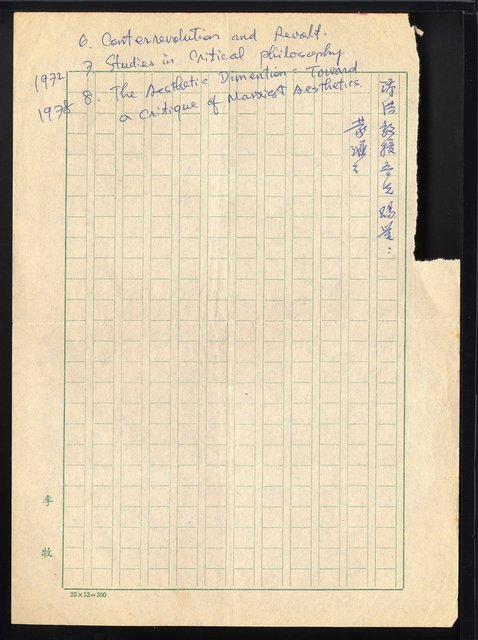 6. Conterrevolution and Revolt.
1972 7. Studies in Critical philosophy
1978 8. The Aesthetic Dimention: Toward
a Critique of Marxist Aesthetics.
教授吾兄賜鑒：
李牧
25×12=300